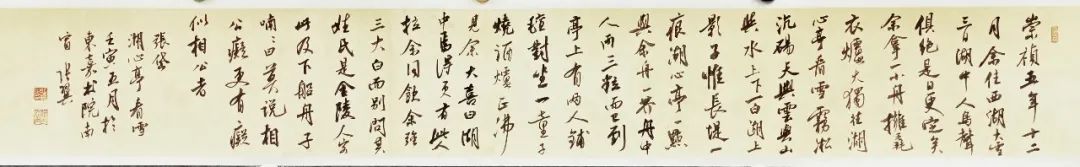 崇禎五年十二
月余住西湖大雪
三日湖中人鳥聲
俱絶是日更定矣
余拏一小舟擁毳
衣爐火獨往湖
心亭看雪霧凇
沆碭天與雲與山
與水上下一白湖上
影子惟長堤一
痕湖心亭一點
與余舟一芥舟中
人两三粒而已到
亭上有两人鋪
氈對坐一童子
燒酒爐正沸
見余大喜曰湖
中焉得更有此人
拉余同飲余强飲
三大白而别問其
姓氏是金陵人客
此及下船舟子
喃喃曰莫説相
公癡更有癡
似相公者
張岱
湖心亭看雪
壬寅五月於
東嘉書院南
窗